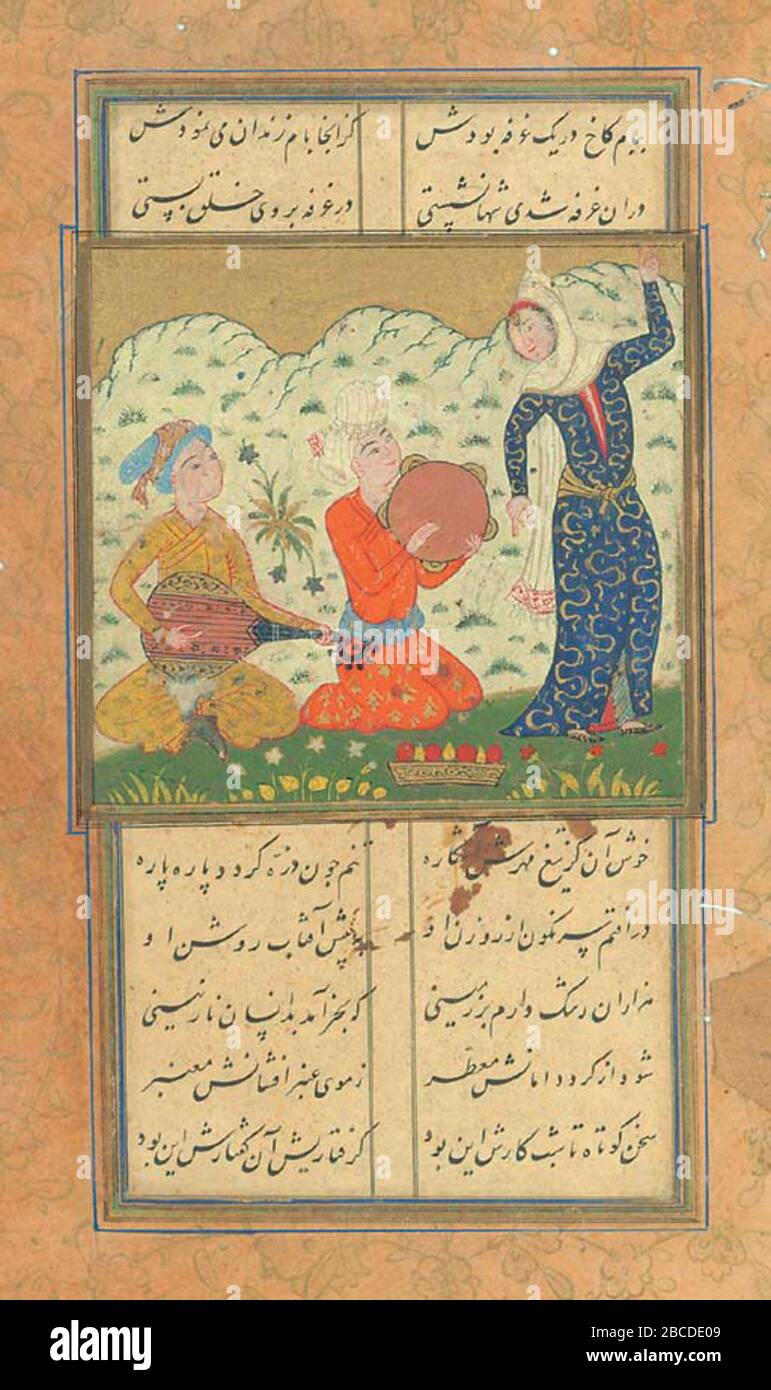 ببام کاخ در یک غرفه بودش کز انجا بام زندان می نمودش
دران غرفه شدی تنها نشستی در غرفه بروی خلق بستی
خوش آن کز تیغ مهرش آشکاره تنم چون ذرّه گردد پاره پاره
درافتم سرنگون از روزن او به پیش آفتاب روشن او
هزاران رشک دارم بر زمینی که بخرامد بدانسان نازنینی
شود از گرد دامانش معطّر ز موی عنبر افشانش معنبر
سخن کوتاه تا شب کارش این بود گرفتاریش آن گفتارش این بود
alamy
Image ID: 2BCDE09
www.alamy.com